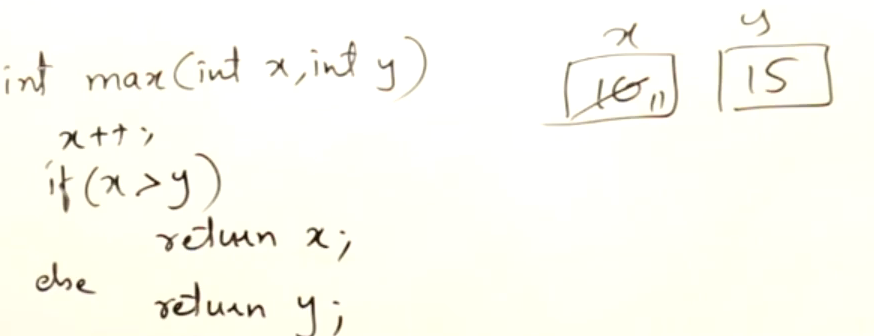 int max(int x,int y)
x++;
if(x>y)
return x;
else
return y;
x y
10 11 15